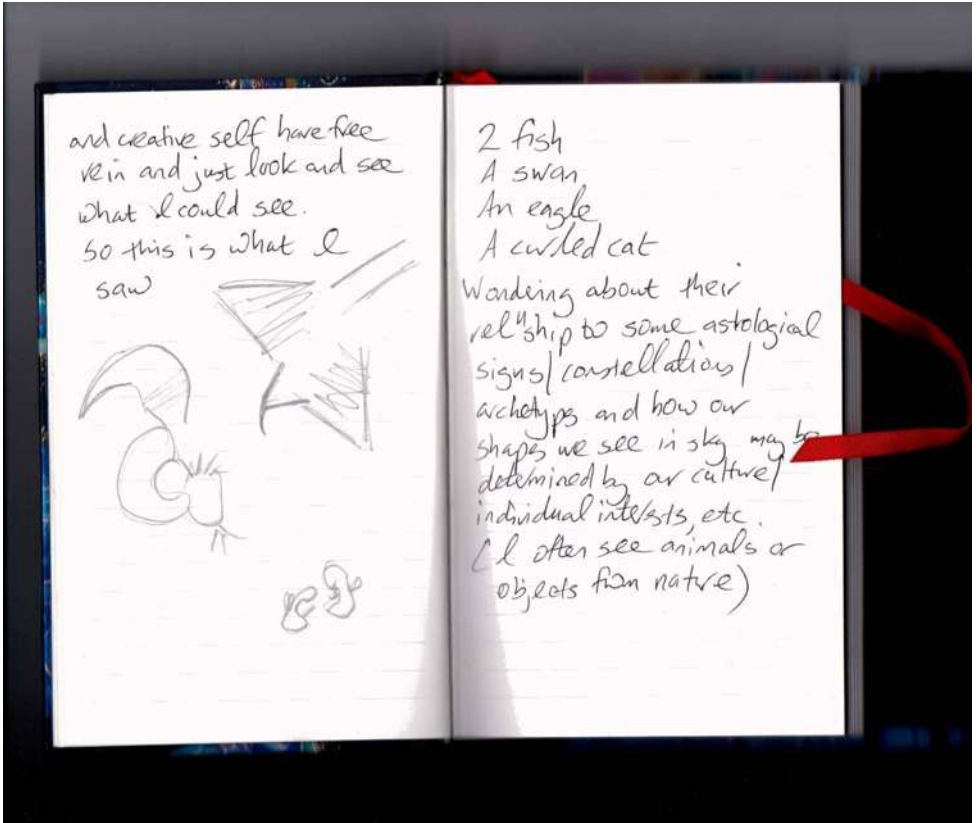 and creative self have free
rein and just look and see
what I could see.
So this is what I
saw
2 fish
A swan
An eagle
A curled cat
Wondering about their
rel"ship to some astological
signs/constellations/
archetyps and how our
shapes we see in sky may be
determined by our culture/
individual interests, etc.
(I often see animals or
objects from nature)